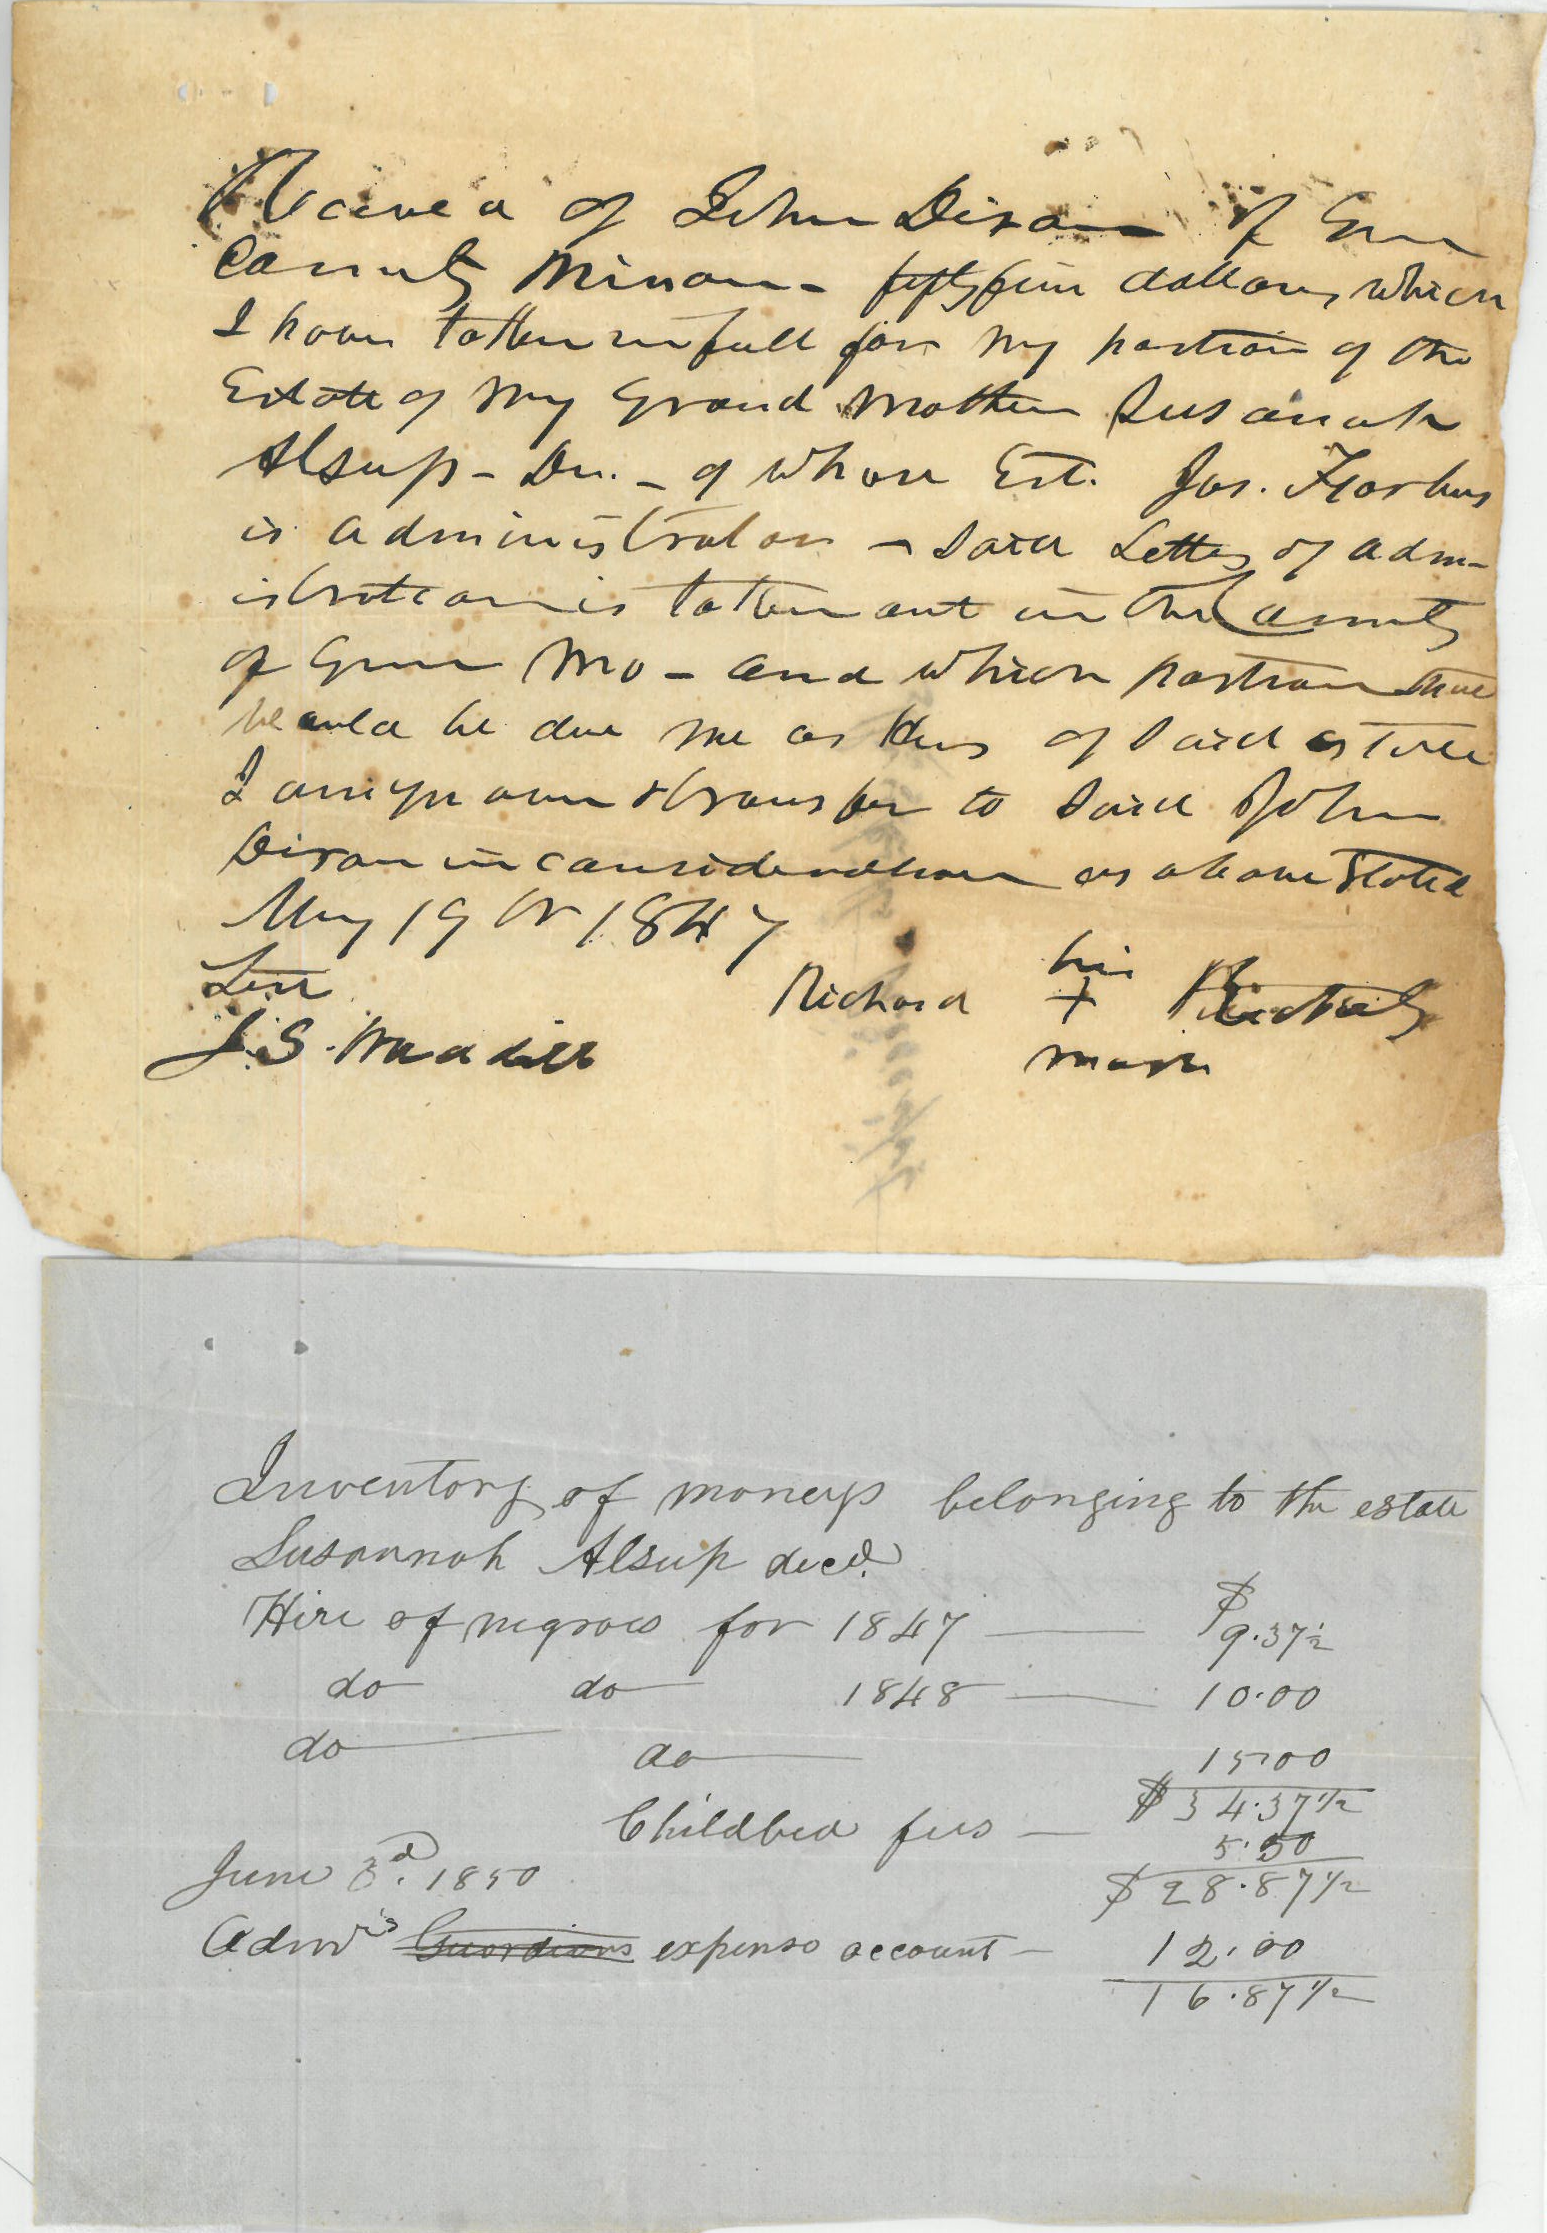 Received of John Dixon of Green
County Missouri - fifty five dollars, which
I have taken in full for my portion of the
Estate of my Grand Mother Susanah
Alsup - Dec. - of whose Est. Jas.
is administrator - Said Letters of adm-
istration is taken out in the County
of Green Mo - and which portion
would be due me as Heir of Said estate
I assign over & transfer to Said John
Dixon in consideration as above Stated
May 19th 1847
Test
his
Richard +
mark
J. S. Waddill
Inventory of moneys belonging to the estate
Susannah Alsup decd.
Hire of negroes for 1847 — $ 9.37½
do do 1848 — 10.00
do do 15.00
$34.37 1/2
Childbed fees — 5.50
June 3d. 1850 $28.87 1/2
Admrs Guardians expense account — 12.00
16.87 1/2